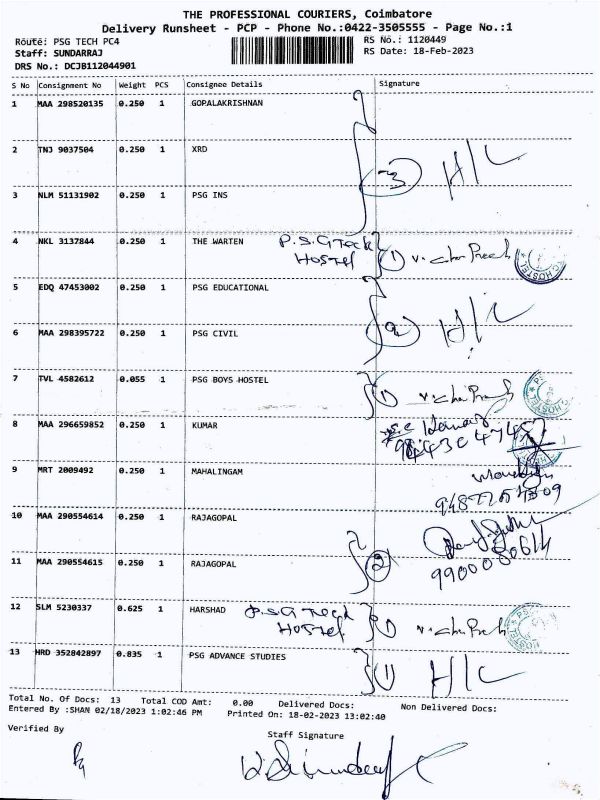 THE PROFESSIONAL COURIERS, Coimbatore
Delivery Runsheet - PCP - Phone No.:0422-3505555 - Page No.:1
Route: PSG TECH PC4 RS No.: 1120449
Staff: SUNDARRAJ RS Date: 18-Feb-2023
DRS No.: DCJB112044901
S No Consignment No Weight PCS Consignee Details Signature
1 MAA 298520135 0.250 1 GOPALAKRISHNAN
2 TNJ 9037504 0.250 1 XRD 3 H/C
3 NLM 51131902 0.250 1 PSG INS
4 NKL 3137844 0.250 1 THE WARTEN P.S.G Teck 1
HOSTEL
5 EDQ 47453002 0.250 1 PSG EDUCATIONAL
6 MAA 298395722 0.250 1 PSG CIVIL 2 H/C
7 TVL 4582612 0.055 1 PSG BOYS HOSTEL 1
8 MAA 296659852 0.250 1 KUMAR
9 MRT 2009492 0.250 1 MAHALINGAM
10 MAA 290554614 0.250 1 RAJAGOPAL
11 MAA 290554615 0.250 1 RAJAGOPAL 2
12 SLM 5230337 0.625 1 HARSHAD P.S.G Teck 1
HOSTEL
13 HRD 352842897 0.835 1 PSG ADVANCE STUDIES 1 H/C
Total No. Of Docs: 13 Total COD Amt: 0.00 Delivered Docs: Non Delivered Docs:
Entered By :SHAN 02/18/2023 1:02:46 PM Printed On: 18-02-2023 13:02:40
Verified By Staff Signature